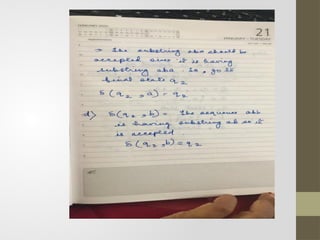 21
→ The substring aba should be
accepted since it is having
substring aba. So, go to
final state q2
δ(q2, a) = q2
d) δ(q2, b) = The sequence abb
is having substring ab so it
is accepted.
δ(q2, b) = q2